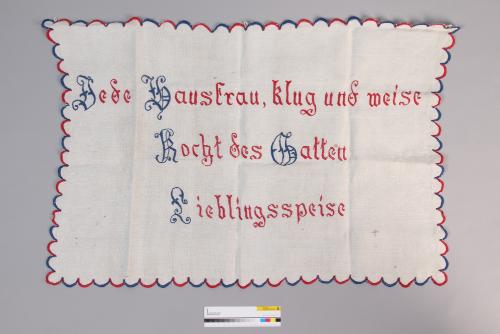 Jede Hausfrau, klug und weise
Kocht des Gatten
Lieblingsspeise